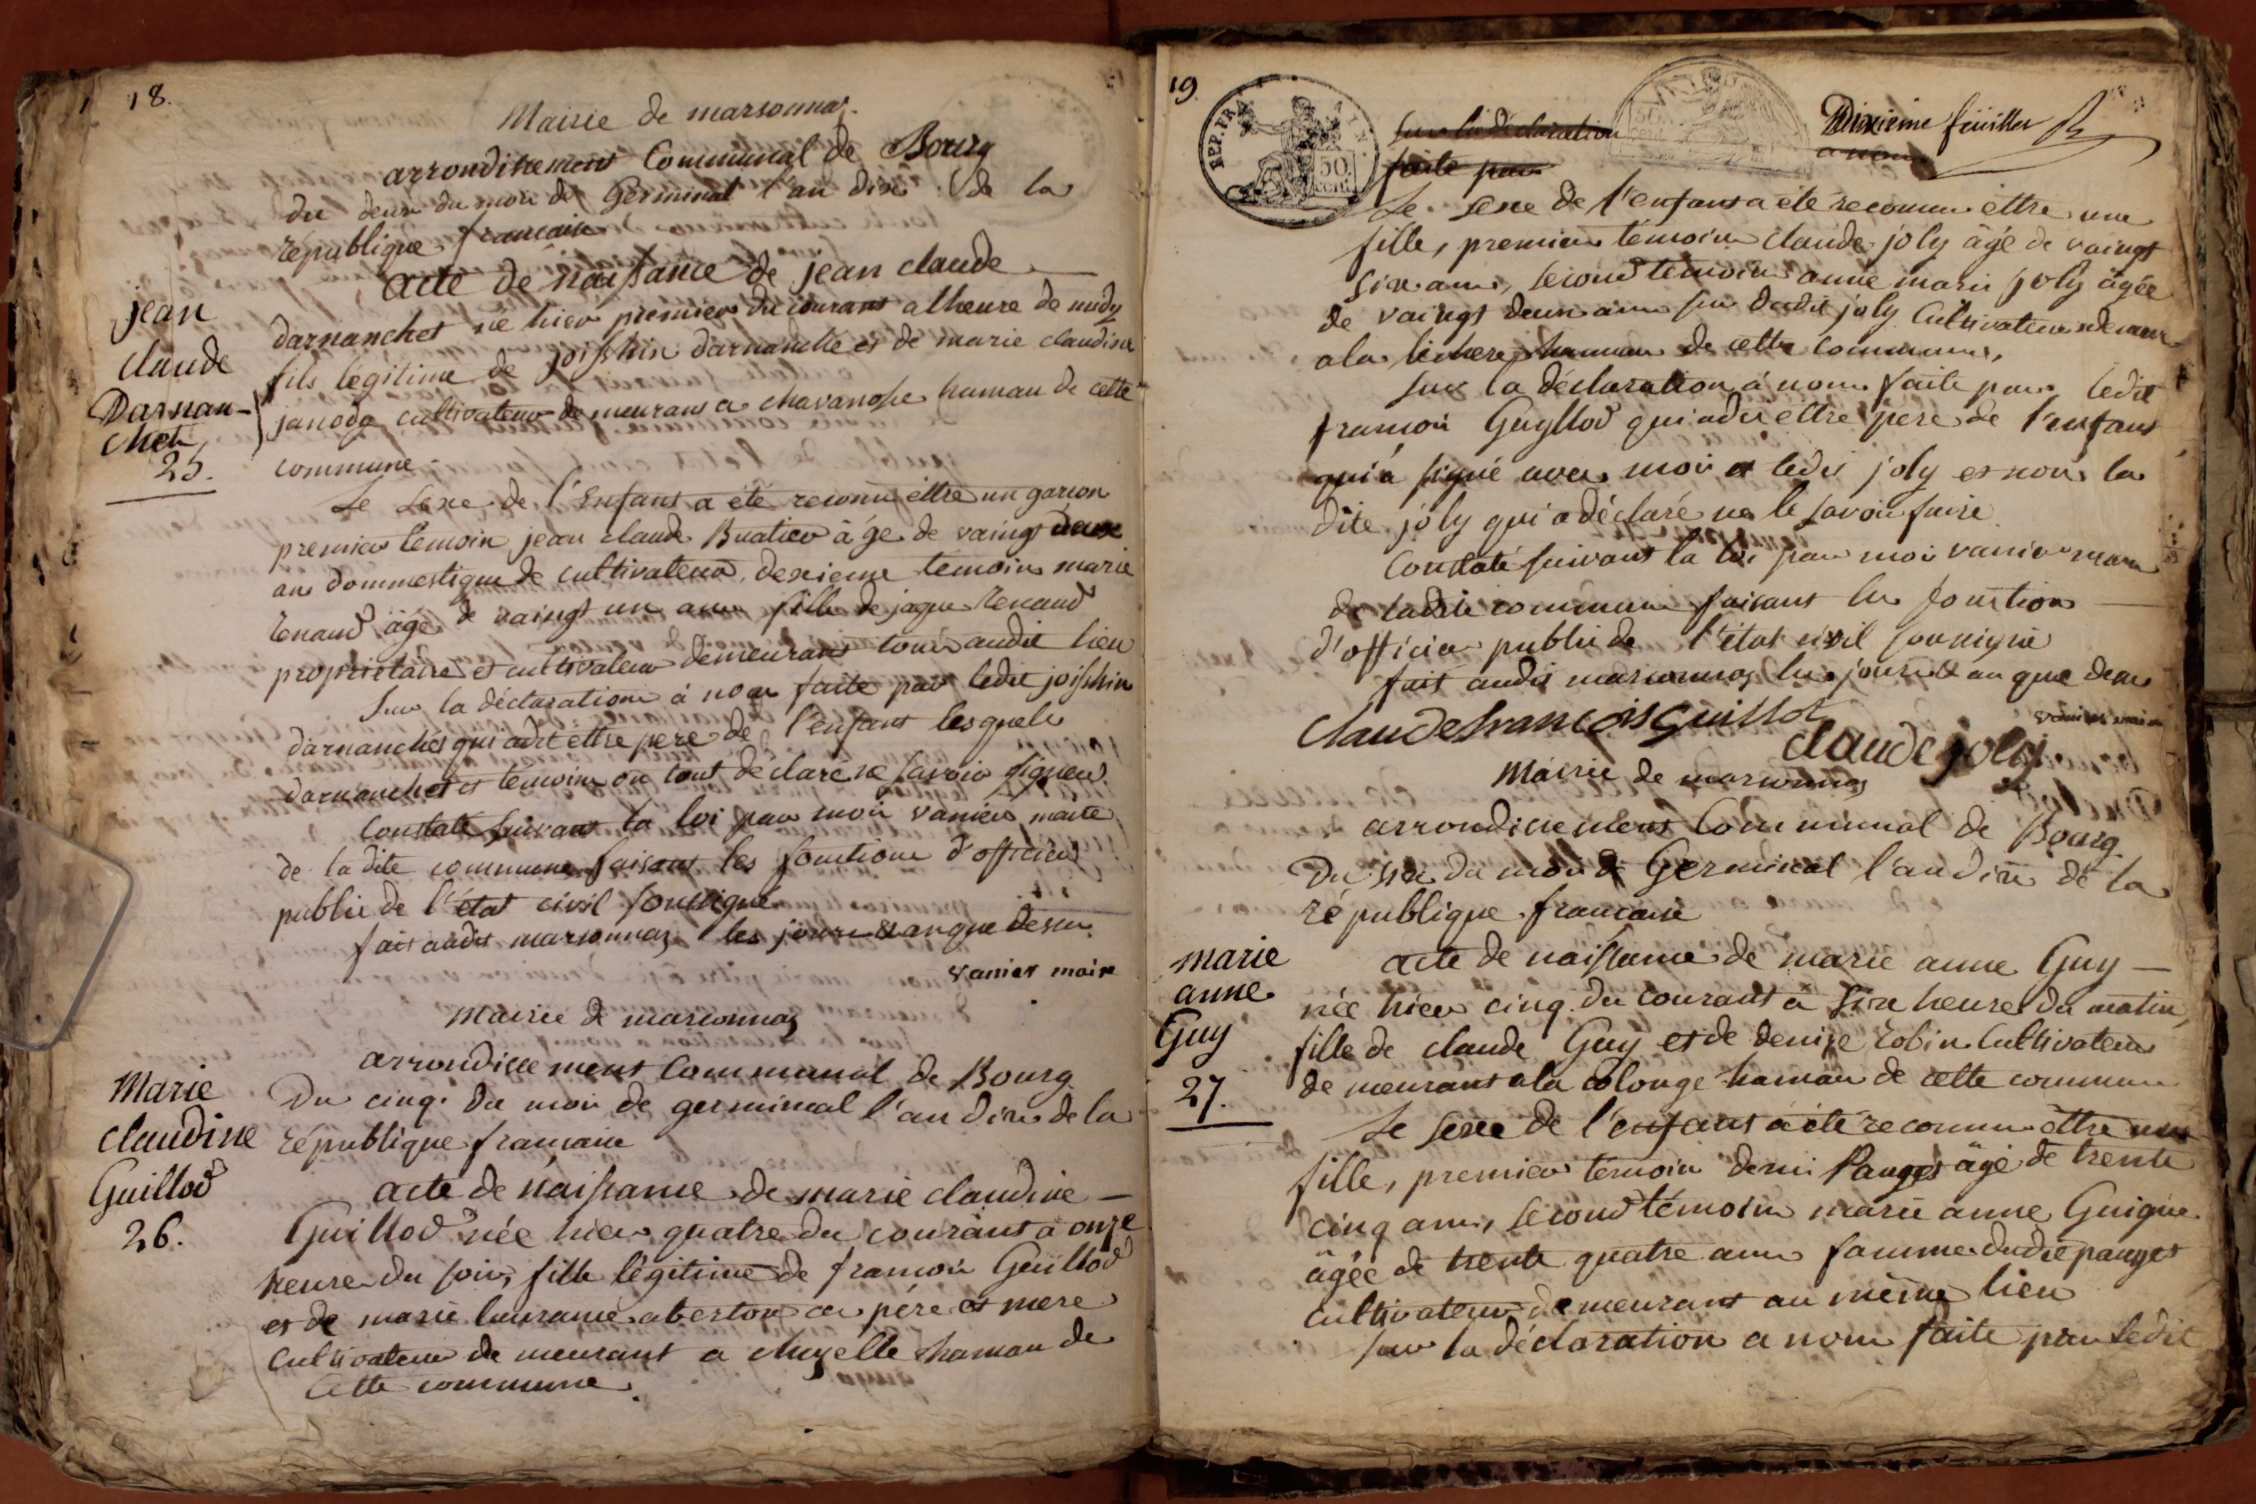 18.
Mairie de marsonnaz.
arrondissement Communal de Bourg
du deux du mois de Germinal l'an dix de la
république francaise
acte de naissance de jean claude
jean
claude
Darnan-
chet
25.
darnanchet né hier premier du courant a lheure de midy
fils légitime de joisphin darnanche et de marie claudine
janody cultivateur demeurant a chavanosse hamau de cette
commune
Le sexe de l'enfant a été reconnu ettre un garcon
premier temoin jean claude Buatier âgé de vaingt deux
ans dommestique de cultivateur, dexieme temoins marie
renaud âgé de vaingt un ans fille de jaque renaud
propriétaire et cultivateur demeurant tous audit lieu
Sur la déclaration à nous faite par ledit joisphin
darnanchet qui adit ettre pere de l'enfant lesquels
darnanchet et temoins on tous déclaré ne savoir signer
Constaté suivant la loi par moi vanier maire
de la dite commune faisant les fonctions d'officier
public de l'état civil soussigné
fait audit marsonnaz les jours & an que dessu
vanier maire
Mairie de marsonnaz
arrondissement Communal de Bourg
Marie
claudine
Guillod
26.
Du cinq du mois de germinal l'an dix de la
république francaise
acte de naissance de marie claudine
Guillod née hier quatre du courant à onze
heure du soir, fille légitime de francois Guillod
et de marie laurance aberton ce pére et mere
Cultivateur de meurant a chuzelle hamau de
cette commune
19.
REP. FRA.
50.
cent.
sur la déclaration
faite par
Dixieme feuillet
a nous
Le sexe de l'enfant a été reconnu ettre une
fille, premier témoin claude joly âgé de vaingt
six ans, second témoin anne marie joly âgée
de vaingt deux ans dudit joly Cultivateur demeur
a la hamau de cette commune,
sur la déclaration à nous faite par ledit
francois Guyllod qui adit ettre pere de l'enfant
qui a signé avec moi et ledit joly et non la
dite joly qui a déclaré ne le savoir faire
Constaté suivant la loi par moi vanier maire
de ladite commune faisant les fonction
d'officier public de l'état civil soussigné
fait audit marsonnaz les jours & an que dessu
vanier maire
Claudefrancois Guillot
claude joly
Mairie de marsonnaz
arrondissement Communal de Bourg
Du six du mois de Germinal l'an dix de la
république francaise
marie
anne
Guy
27.
acte de naissance de marie anne Guy
née hier cinq du courant à six heures du matin,
fille de claude Guy et de denise robin Cultivateur
de meurant a la colonge hamau de cette commune
Le sexe de l'enfant a été reconnu ettre une
fille, premier témoin deni Panget âgé de trente
cinq ans, second témoin marie anne Guigue
âgée de trente quatre ans famme dudit panget
Cultivateur demeurant au même lieu
sur la déclaration a nous faite par ledit